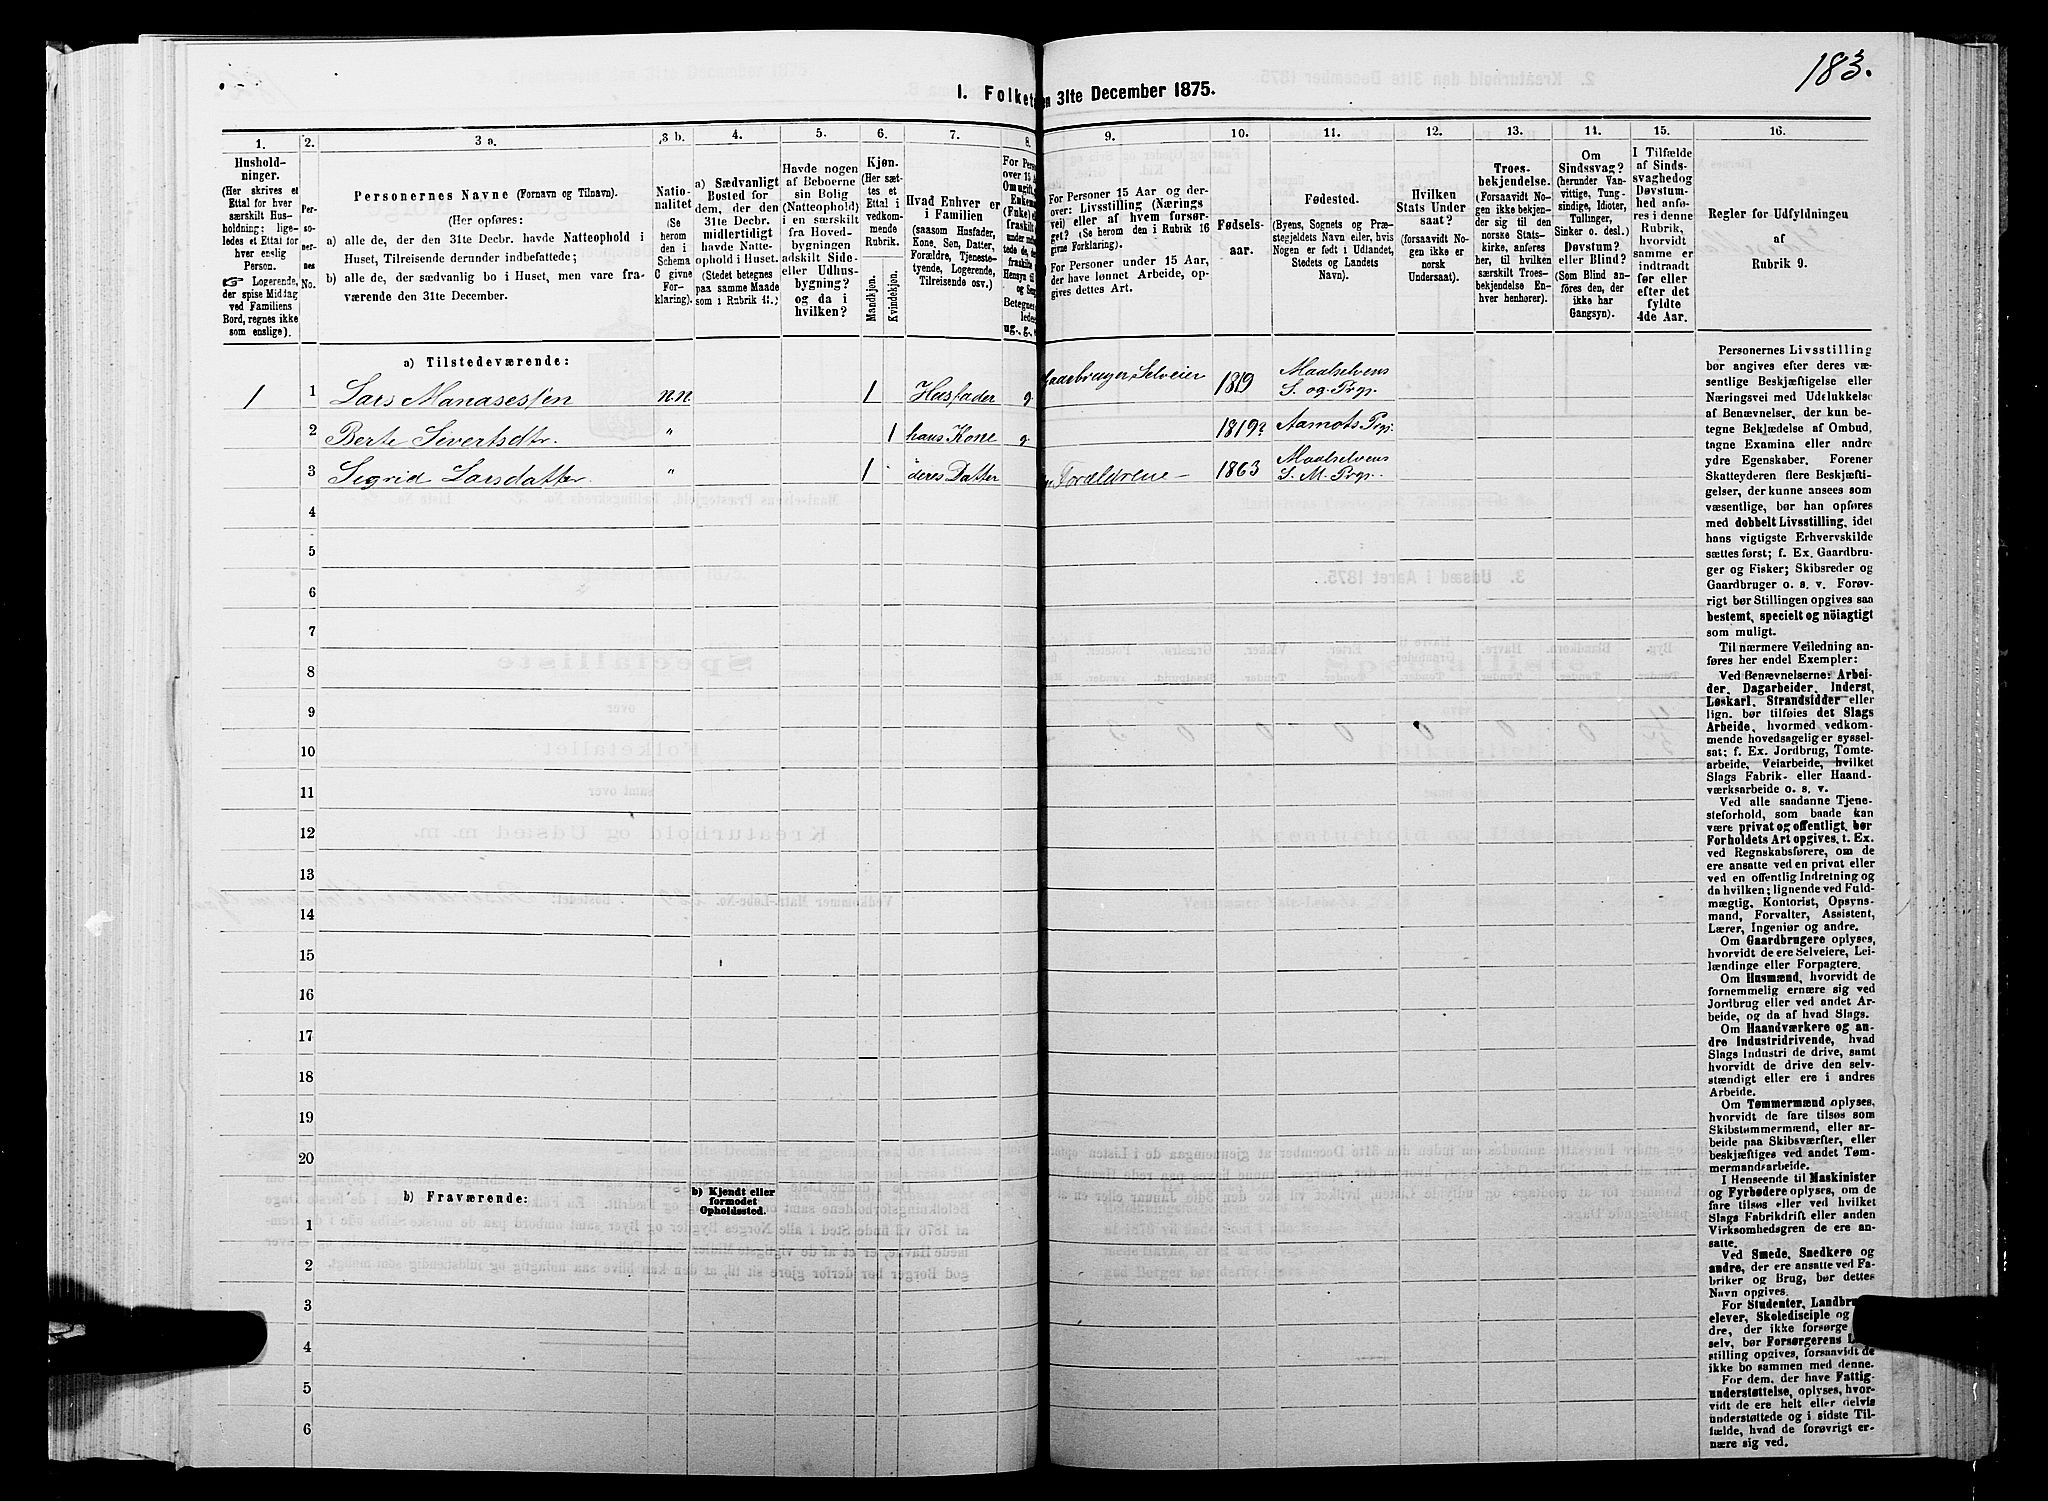 183.
1. Folket
en 31te December 1875.
1.
2.
3 a.
3 b.
4.
5.
6.
7.
8.
9.
10.
11.
12.
13.
14.
15.
16.
Hushold-
ninger.
(Her skrives et
Ettal for hver
særskilt Hus-
holdning; lige-
ledes et Ettal for
hver enslig
Person.
☞ Logerende,
der spise Middag
ved Familiens
Bord, regnes ikke
som enslige).
Per-
so-
ner-
nes
No.
Personernes Navne (Fornavn og Tilnavn).
(Her opføres:
a) alle de, der den 31te Decbr. havde Natteophold i
Huset, Tilreisende derunder indbefattede;
b) alle de, der sædvanlig bo i Huset, men vare fra-
værende den 31te December.
Natio-
nalitet
(Se
herom
den i
Schema
C givne
For-
klaring).
a) Sædvanligt
Bosted for
dem, der den
31te Decbr.
midlertidigt
havde Natte-
ophold i Huset.
(Stedet betegnes
paa samme Maade
som i Rubrik 11.)
Havde nogen
af Beboerne
sin Bolig
(Natteophold)
i en særskilt
fra Hoved-
bygningen
adskilt Side-
eller Udhus-
bygning?
og da i
hvilken?
Kjøn.
(Her sæt-
tes et
Ettal i
vedkom-
mende
Rubrik.
Mandkjøn.
Kvindekjøn.
Hvad Enhver er
i Familien
(saasom Husfader,
Kone, Søn, Datter,
Forældre, Tjeneste-
tyende, Logerende,
Tilreisende osv.)
For Pers
over 15 A
Om ugift,
Enkem
(Fuke) el
fraskilt
ug., g.,
For Personer 15 Aar og der-
over: Livsstilling (Nærings
vei) eller af hvem forsør-
get? (Se herom den i Rubrik 16
givne Forklaring).
For Personer under 15 Aar,
der have lønnet Arbeide, op-
gives dettes Art.
Fødsels-
aar.
Fødested.
(Byens, Sognets og Præ-
stegjeldets Navn eller, hvis
Nogen er født i Udlandet,
Stedets og Landets
Navn).
Hvilken
Stats Under
saat?
(forsaavidt No-
gen ikke er
norsk
Undersaat).
Troes-
bekjendelse.
(Forsaavidt No-
gen ikke bekjen-
der sig til den
norske Stats-
kirke, anføres
her, til hvilken
særskilt Troes-
bekjendelse En-
hver henhører).
Om
Sindssvag?
(herunder Van-
vittige, Tung-
sindige, Idioter,
Tullinger,
Sinker o. desl.)
Døvstum?
eller Blind?
(Som Blind an-
føres den, der
ikke har
Gangsyn).
I Tilfælde
af Sinds-
svaghed og
Døvstum-
hed anfø-
res i denne
Rubrik,
hvorvidt
samme er
indtraadt
før eller
efter det
fyldte
4de Aar.
Regler for Udfyldningen
af
Rubrik 9.
a) Tilstedeværende:
1 1 Lars Manasessen n.n. 1 Husfader g Gaardbruger Selveier 1819 Maalselvens S. og Prgj.
2 Berte Sivertsdtr. " 1 hans Kone g. 1819? Aamots Prgj.
3 Sigrid Larsdatter. " 1 deres Datter Forældrene 1863 Maalselvens S. M. Prgj.
4
5
6
7
8
9
10
11
12
13
14
15
16
17
18
19
20
b) Fraværende:
b) Kjendt eller
formodet
Opholdssted.
1
2
3
4
5
6
Personernes Livsstilling
bør angives efter deres væ-
sentlige Beskjæftigelse eller
Næringsvei med Udelukkelse
af Benævnelser, der kun be-
tegne Beklædelse af Ombud,
tagne Examina eller andre
ydre Egenskaber. Forener
Skatteyderen flere Beskjæfti-
gelser, der kunne ansees som
væsentlige, bør han opføres
med dobbelt Livsstilling, idet
hans vigtigste Erhvervskilde
sættes først; f. Ex. Gaardbru-
ger og Fisker; Skibsreder og
Gaardbruger o. s. v. Forøv-
rigt bør Stillingen opgives saa
bestemt, specielt og nöiagtigt
som muligt.
Til nærmere Veiledning an-
føres her endel Exempler:
Ved Benævnelserne: Arbei-
der, Dagarbeider, Inderst,
Løskarl, Strandsidder eller
lign. bør tilføies det Slags
Arbeide, hvormed vedkom-
mende hovedsagelig er syssel-
sat; f. Ex. Jordbrug, Tomte-
arbeide, Veiarbeide, hvilket
Slags Fabrik- eller Haand-
værksarbeide o. s. v.
Ved alle saadanne Tjene-
steforhold, som baade kan
være privat og offentligt, bør
Forholdets Art opgives, t. Ex.
ved Regnskabsførere, om de
ere ansatte ved en privat eller
ved en offentlig Indretning og
da hvilken; lignende ved Fuld-
mægtig, Kontorist, Opsyns-
mand, Forvalter, Assistent,
Lærer, Ingeniør og andre.
Om Gaardbrugere oplyses,
hvorvidt de ere Selveiere, Lei-
lændinge eller Forpagtere.
Om Husmænd, hvorvidt de
fornemmelig ernære sig ved
Jordbrug eller ved andet Ar-
beide, og da af hvad Slags.
Om Haandværkere og an-
dre Industridrivende, hvad
Slags Industri de drive, samt
hvorvidt de drive den selv-
stændigt eller ere i andres
Arbeide.
Om Tømmermænd oplyses,
hvorvidt de fare tilsøs som
Skibstømmermænd, eller ar-
beide paa Skibsværfter, eller
beskjæftiges ved andet Tøm-
mermandsarbeide.
I Henseende til Maskinister
og Fyrbødere oplyses, om de
fare tilsøs eller ved hvilket
Slags Fabrikdrift eller anden
Virksomhedsgren de ere an-
satte.
Ved Smede, Snedkere og
andre, der ere ansatte ved Fa-
briker og Brug, bør dettes
Navn opgives.
For Studenter, Landbru
elever, Skoledisciple og
dre, der ikke forsørge
selv, bør Forsørgerens L
stilling opgives, forsaavidt de
ikke bo sammen med denne.
For dem, der have Fattig-
understøttelse, oplyses, hvor-
vidt de ere helt eller delvis
understøttede og i sidste Til-
fælde, hvad de forøvrigt er-
nære sig ved.